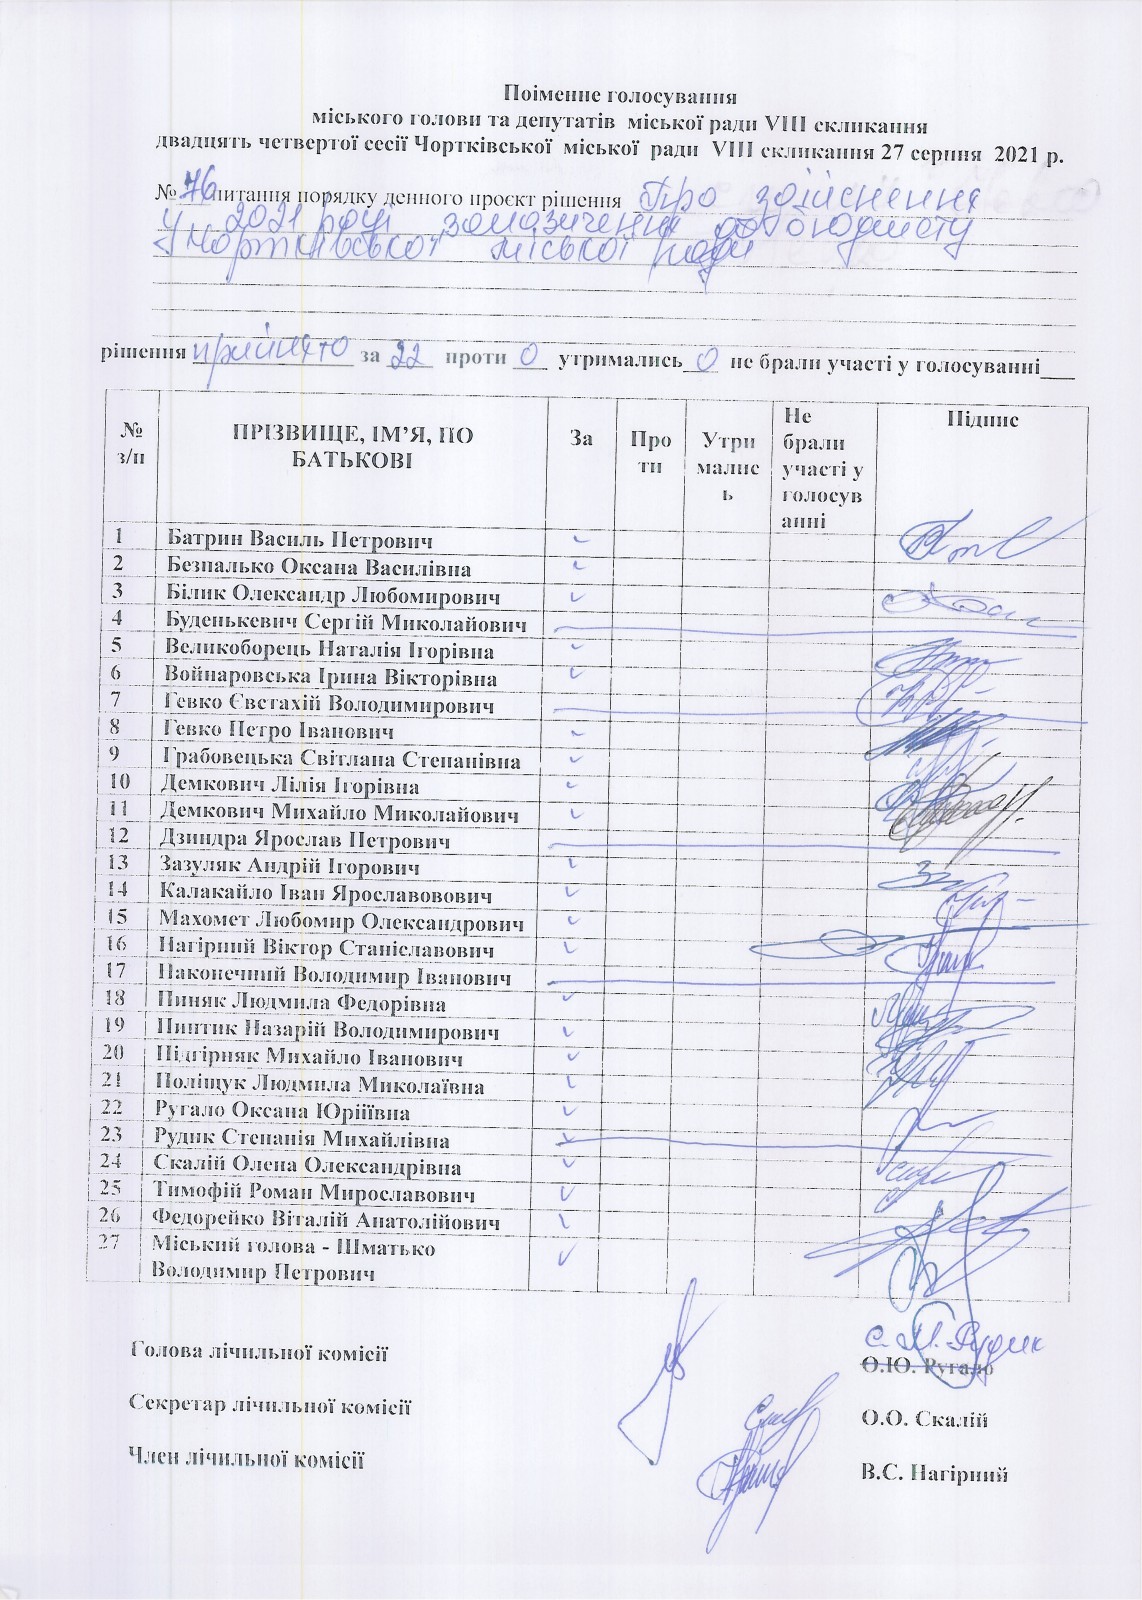 Поіменне голосування
міського голови та депутатів міської ради VIII скликання
двадцять четвертої сесії Чортківської міської ради VIII скликання 27 серпня 2021 р.
№ 76 питання порядку денного проєкт рішення Про здійснення
у 2021 році запозичення до бюджету
Чортківської міської ради
рішення прийнято за 22 проти 0 утримались 0 не брали участі у голосуванні___
№ з/п ПРІЗВИЩЕ, ІМ’Я, ПО БАТЬКОВІ За Про ти Утри малис ь Не брали участі у голосув анні Підпис
1 Батрин Василь Петрович ✓
2 Безпалько Оксана Василівна ✓
3 Білик Олександр Любомирович ✓
4 Буденькевич Сергій Миколайович
5 Великоборець Наталія Ігорівна ✓
6 Войнаровська Ірина Вікторівна ✓
7 Гевко Євстахій Володимирович
8 Гевко Петро Іванович ✓
9 Грабовецька Світлана Степанівна ✓
10 Демкович Лілія Ігорівна ✓
11 Демкович Михайло Миколайович ✓
12 Дзиндра Ярослав Петрович
13 Зазуляк Андрій Ігорович ✓
14 Калакайло Іван Ярославовович ✓
15 Махомет Любомир Олександрович ✓
16 Нагірний Віктор Станіславович ✓
17 Наконечний Володимир Іванович
18 Пиняк Людмила Федорівна ✓
19 Пинтик Назарій Володимирович ✓
20 Підгірняк Михайло Іванович ✓
21 Поліщук Людмила Миколаївна ✓
22 Ругало Оксана Юріїївна ✓
23 Рудик Степанія Михайлівна ✓
24 Скалій Олена Олександрівна ✓
25 Тимофій Роман Мирославович ✓
26 Федорейко Віталій Анатолійович ✓
27 Міський голова - Шматько Володимир Петрович ✓
С.М. Рудик
Голова лічильної комісії О.Ю. Ругало
Секретар лічильної комісії О.О. Скалій
Член лічильної комісії В.С. Нагірний